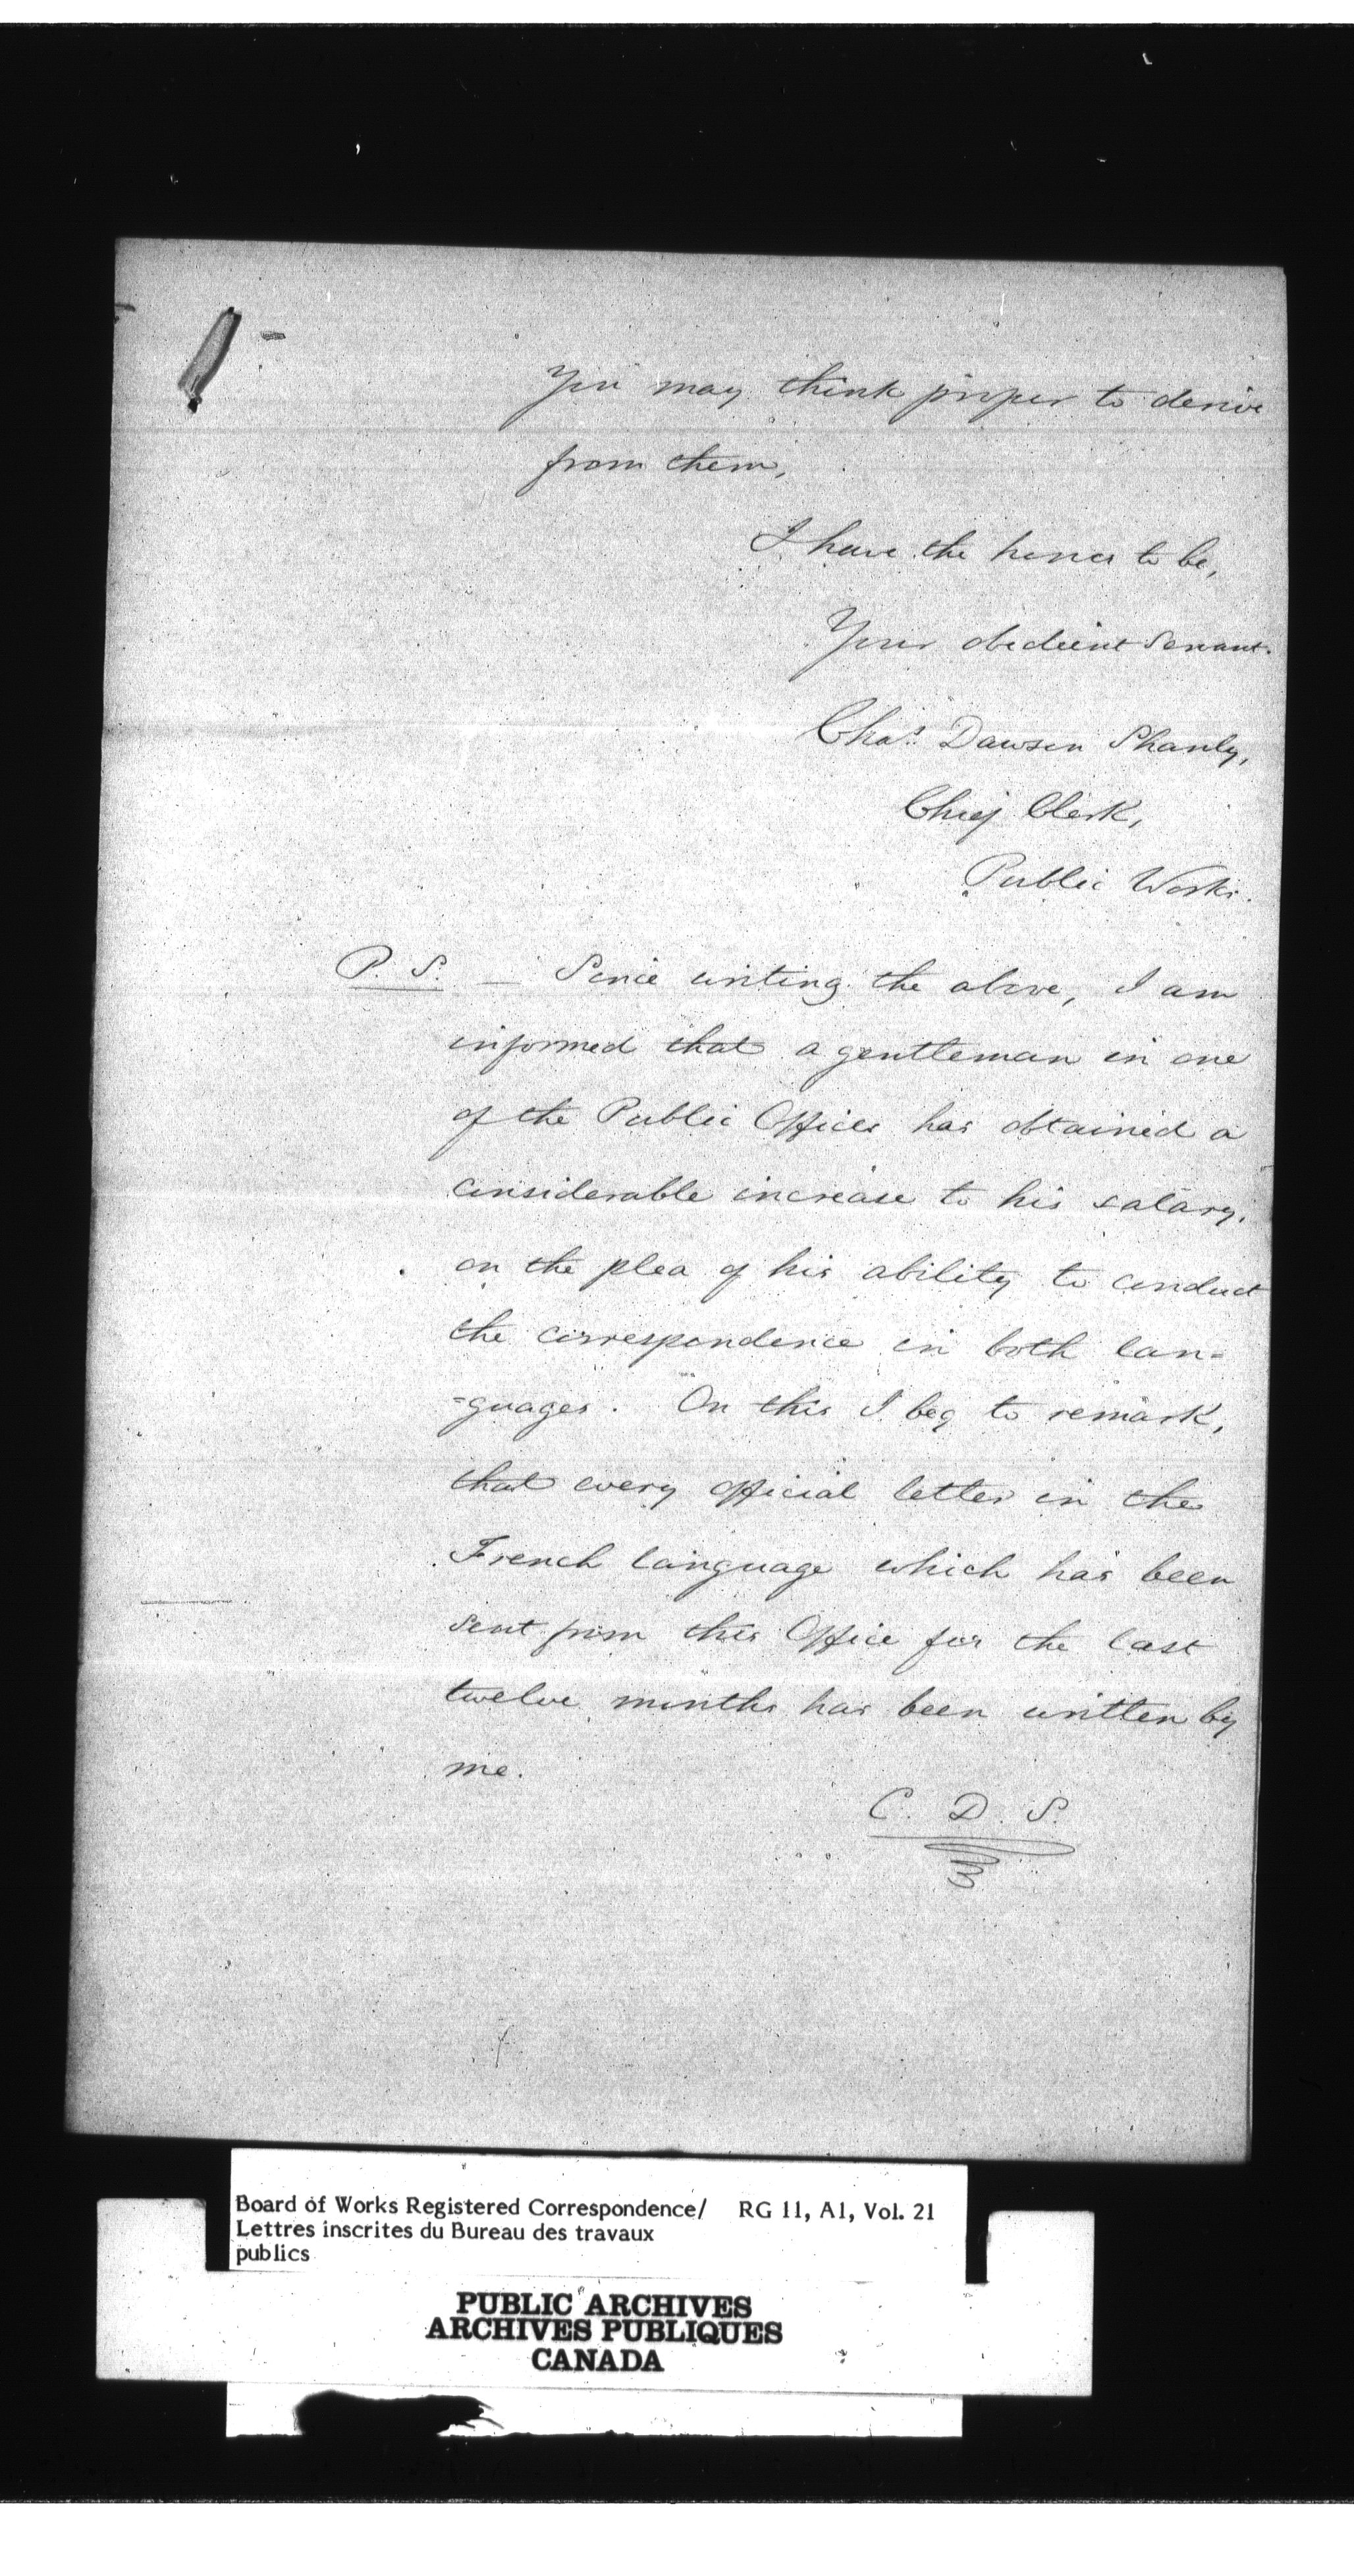 You may think proper to derive
from them,
I have the honor to be,
Your obedient Servant.
Chas. Dawson Shanly,
Chief Clerk,
Public Works.
P. S. — Since writing the above, I am
informed that a gentleman in one
of the Public Offices has obtained a
considerable increase to his salary,
on the plea of his ability to conduct
the correspondence in both lan=
=guages. On this I beg to remark,
that every official letter in the
French language which has been
sent from this Office for the last
twelve months has been written by
me.
C. D. S.
Board of Works Registered Correspondence/ RG 11, A1, Vol. 21
Lettres inscrites du Bureau des travaux
publics
PUBLIC ARCHIVES
ARCHIVES PUBLIQUES
CANADA